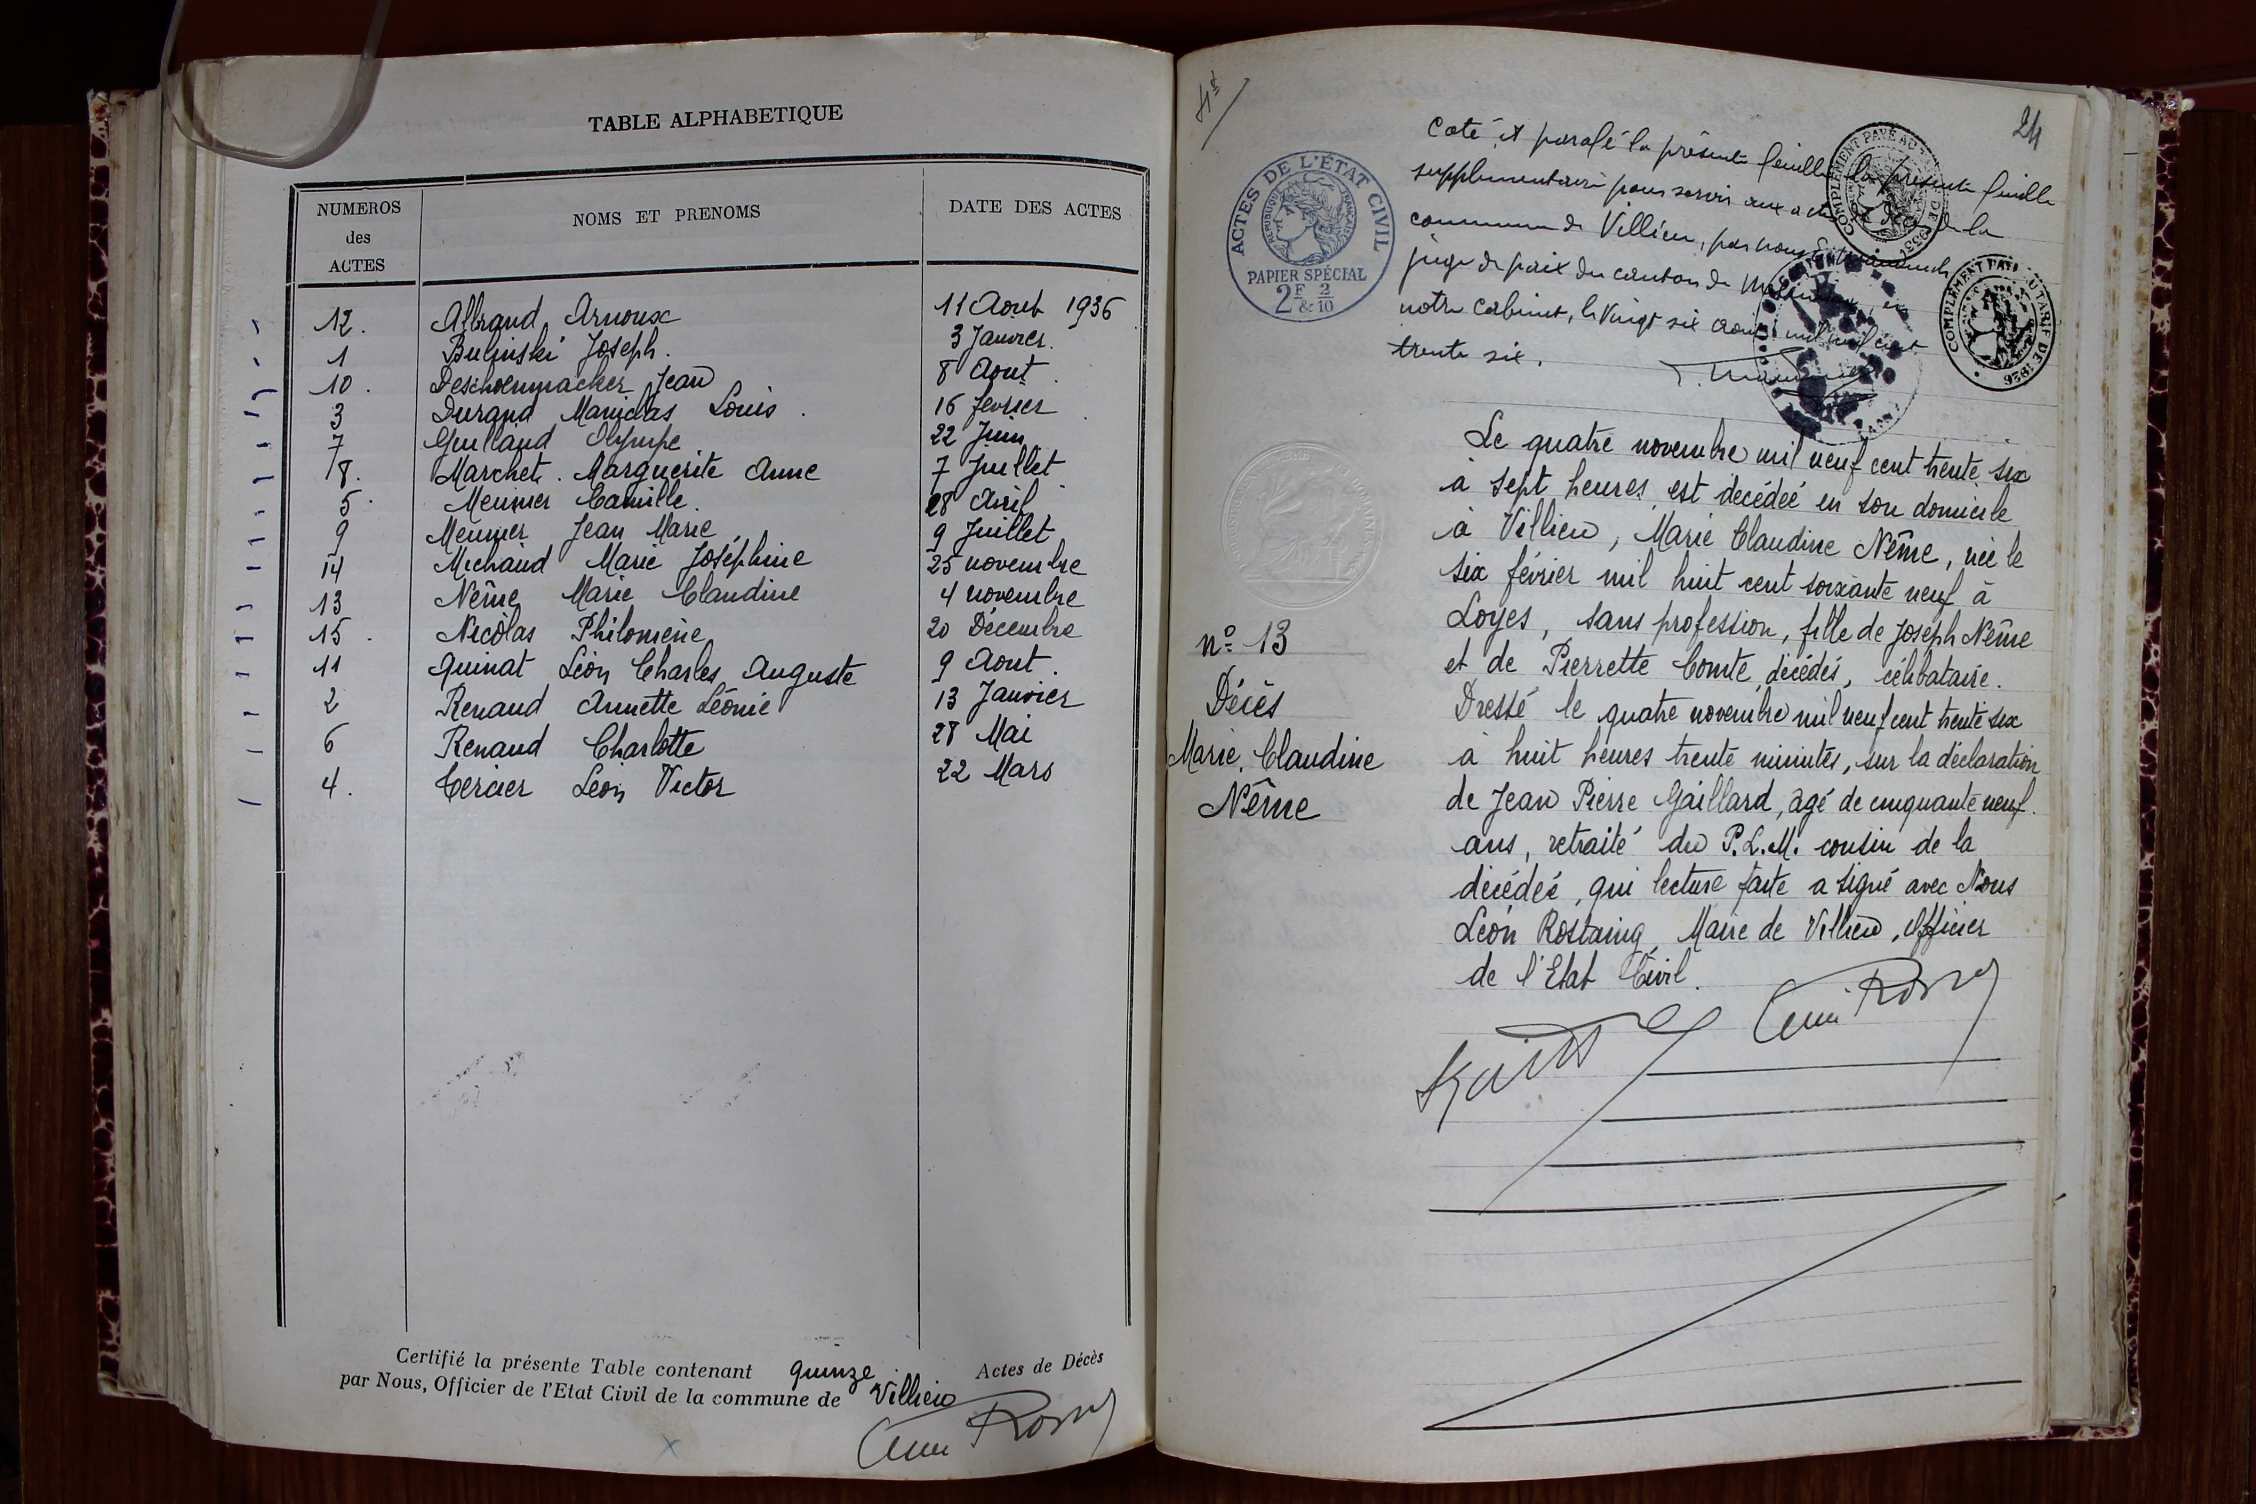 TABLE ALPHABETIQUE
NUMEROS des ACTES
NOMS ET PRENOMS
DATE DES ACTES
12. Albrand Arnoux 11 Aout 1936
1 Bulinski Joseph. 3 Janvier.
10. Deschoenmacker Jean 8 Aout.
3 Durand Maniclas Louis. 16 fevrier
7 Guilland Olympe 22 Juin
8. Marchet. Marguerite Anne 7 Juillet
5. Meunier Camille. 28 Avril
9 Meunier Jean Marie 9 Juillet
14 Michaud Marie Joséphine 25 novembre
13 Nême Marie Claudine 4 novembre
15. Nicolas Philomène 20 Décembre
11 Quinat Léon Charles Auguste 9 Aout.
2 Renaud Annette Léonie 13 Janvier
6 Renaud Charlotte 28 Mai
4. Tercier Léon Victor 22 Mars
Certifié la présente Table contenant quinze Actes de Décès
par Nous, Officier de l'Etat Civil de la commune de Villieu
24
ACTES DE L'ÉTAT CIVIL
RÉPUBLIQUE FRANÇAISE
PAPIER SPÉCIAL
2F & 2/10
COMPLÉMENT PAYÉ AU TARIF DE 1936
Coté et parafé la présente feuille la présente feuille
supplémentaire pour servir aux actes de de la
commune de Villieu, par nous
juge de paix du canton de
notre cabinet, le vingt six août mil neuf cent
trente six.
n° 13
Décès
Marie Claudine
Nême
Le quatre novembre mil neuf cent trente six
à sept heures est decédeé en son domicile
à Villieu, Marie Claudine Nême, née le
six février mil huit cent soixante neuf à
Loyes, sans profession, fille de Joseph Nême
et de Pierrette Comte, décédés, célibataire.
Dressé le quatre novembre mil neuf cent trente six
à huit heures trente minutes, sur la déclaration
de Jean Pierre Gaillard, agé de cinquante neuf
ans, retraité du P.L.M. cousin de la
décédeé, qui lecture faite a signé avec Nous
Léon Rostaing, Maire de Villieu, Officier
de l'Etat Civil.